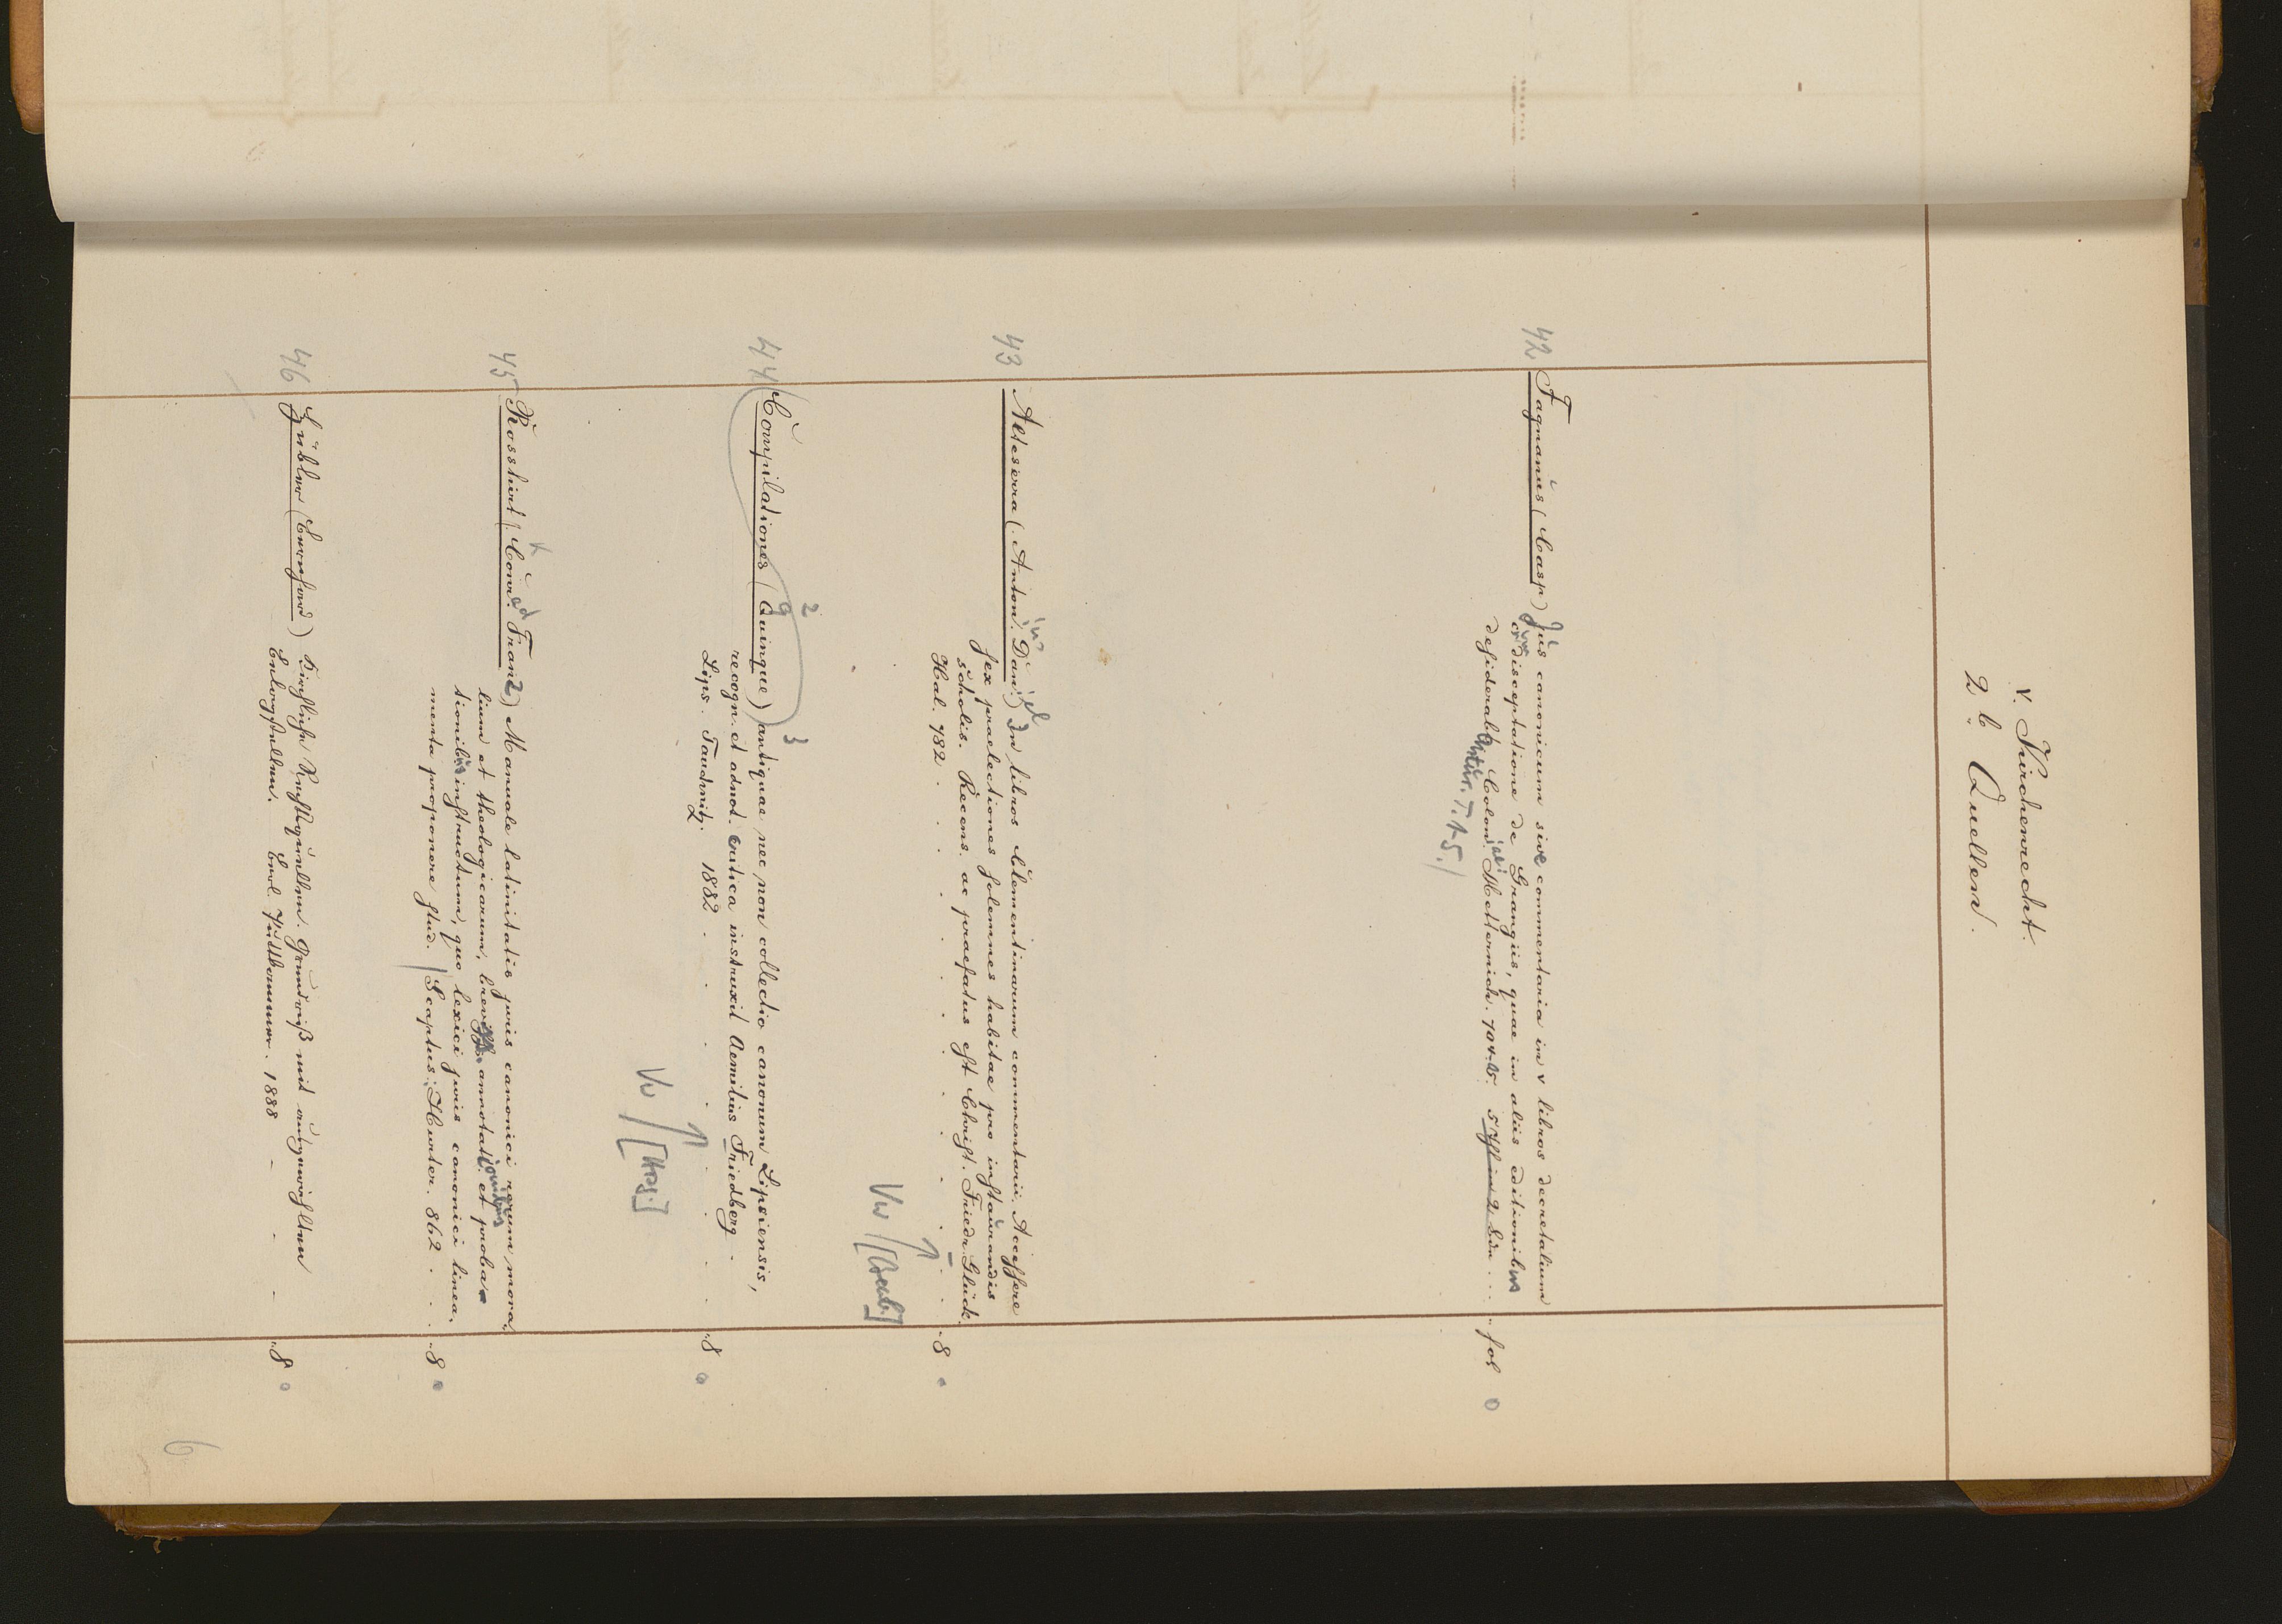 v. Kirchenrecht.
2 b Quellen.
42 Fagnanus (Casp) Jus canonicum sive commentaria in v libros decretalium
cum disceptatione de Grangiis, quae in aliis editionibus
desiderabantur. T. 1-5./ Coloniae. Metternich. 704-5. 5 Thl in 2 Bdn . . . fol 0
43 Alteserra (Antonin Daniel) In libros Clementinarum commentarii. Accessere
sex praelectiones solemnes habitae pro instaurandis
scholis. Recens. ac praefatus est Christ. Friedr. Glück.
Hal. 782 . . . . . . . . 8
Vw / [Beeb.]
44 Compilationes (Quinque) antiquae nec non collectio canonum Lipsiensis,
2 3
recogn. et adnot. critica instruxit Aemilius Friedberg.
Lips. Tauchnitz. 1882 . . . . . . . 8 0
Vw / [Hos.]
45 Rosshirt (Conrad Franz) Manuale latinitatis juris canonici rerum mora-
lium et theologicarum, breviss. annotationibus et proba-
tionibus instructum, quo lexici juris canonici linea-
menta proponere stud. / Scaphus. Hurter. 862 . . . 8
46 Hübler (Bernhard) Kirchliche Rechtsquellen. Grundriß mit ausgewählten
Belegstellen. Berl. Puttkammer. 1888 - - - 8 0
6